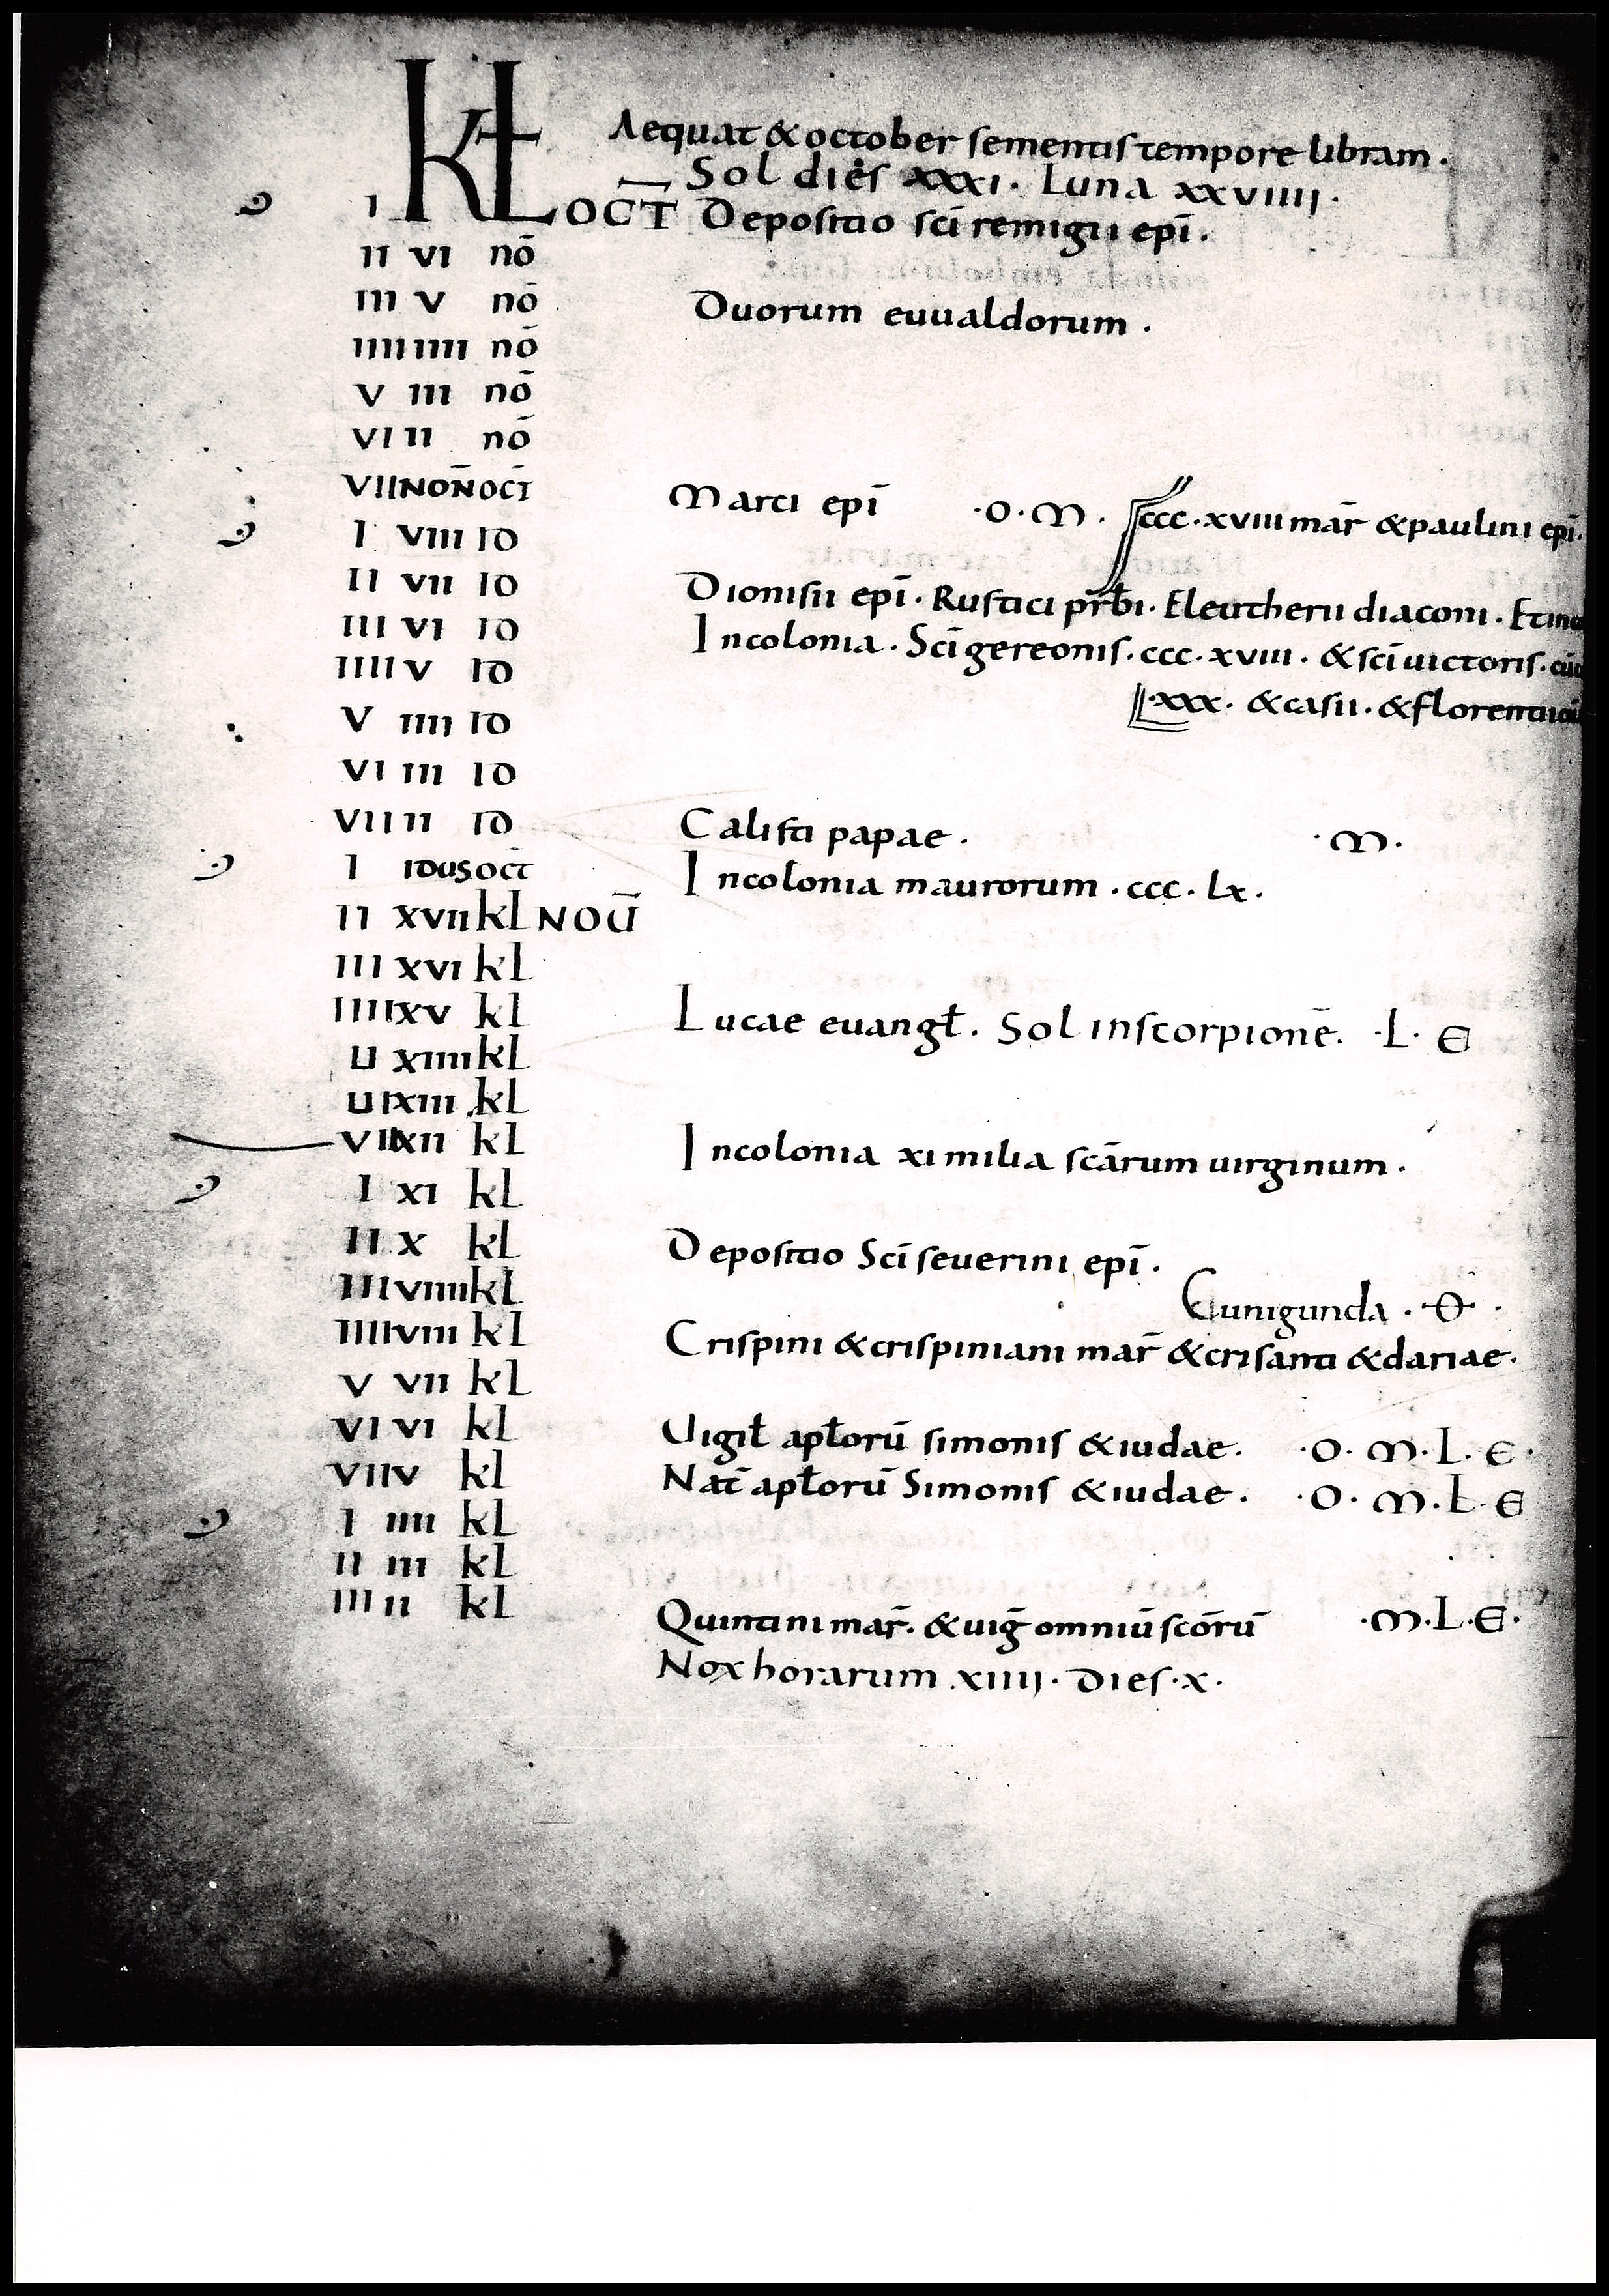 Aequat & october sementis tempore libram.
Sol dies xxxi. Luna xxviiii.
I KL OCT Depositio sci remigii epi.
II VI nō
III V nō Duorum euualdorum.
IIII IIII nō
V III nō
VI II nō
VII NON OCT Marci epī .O.M. ccc.xviii mar̄ & paulini epī.
I VIII ID
II VII ID Dionisii epī. Rustici prbi. Eleutherii diaconi.
III VI ID In colonia. Scī gereonis. ccc. xviii. & scī uictoris.
IIII V ID
V IIII ID .xxx. & casii. & florentii
VI III ID
VII II ID Calisti papae. .M.
I IDUS OCT In colonia maurorum. ccc. lx.
II XVII KL NOU
III XVI KL
IIII XV KL Lucae euangł. Sol in scorpionē. .L. E
U XIIII KL
UI XIII KL
VII XII KL In colonia xi milia scārum uirginum.
I XI KL
II X KL Depositio Scī seuerini epī.
III VIIII KL Cunigunda. O.
IIII VIII KL Crispini & crispiniani mar̄ & crisanti & dariae.
V VII KL
VI VI KL Uigił apłorū simonis & iudae. .O. M. L. E.
VII V KL Nat̄ apłorū Simonis & iudae. .O. M. L. E
I IIII KL
II III KL
III II KL Quintini mar̄. & uiḡ omniū scōrū .M.L.E.
Nox horarum xiiii. Dies.x.